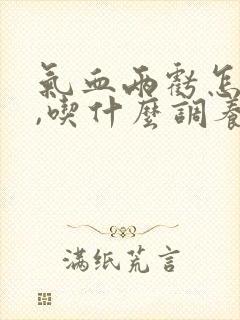 氣血兩虧怎
,喫什麼調養
满纸荒言